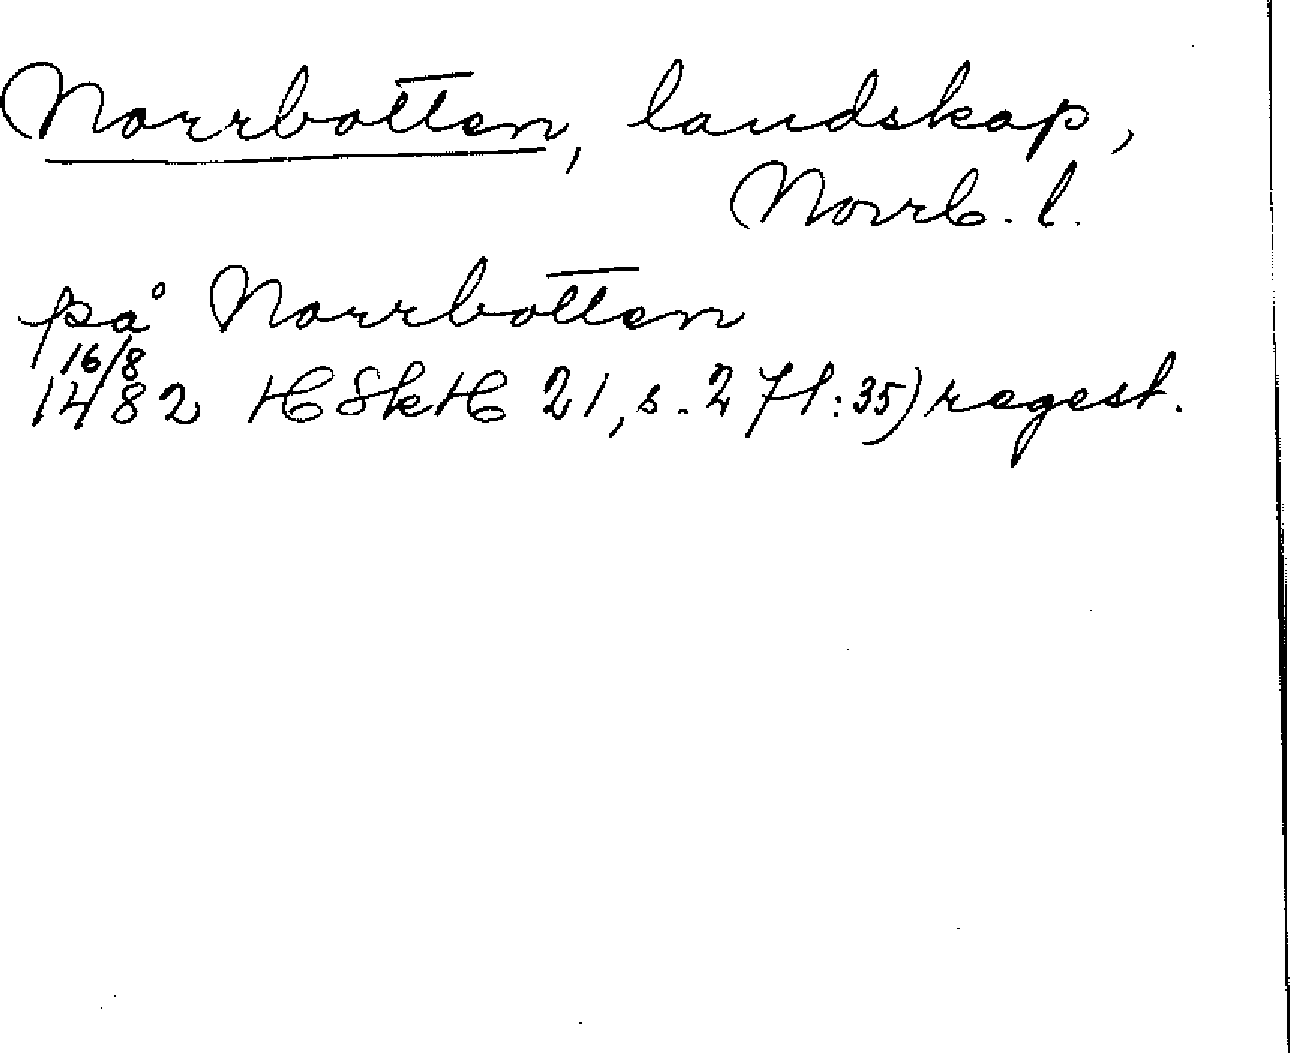 Norrbotten, landskap,
Norrb. l.
på Norrbotten
16/8
1482 HSkH 21, s. 271:35) regest.